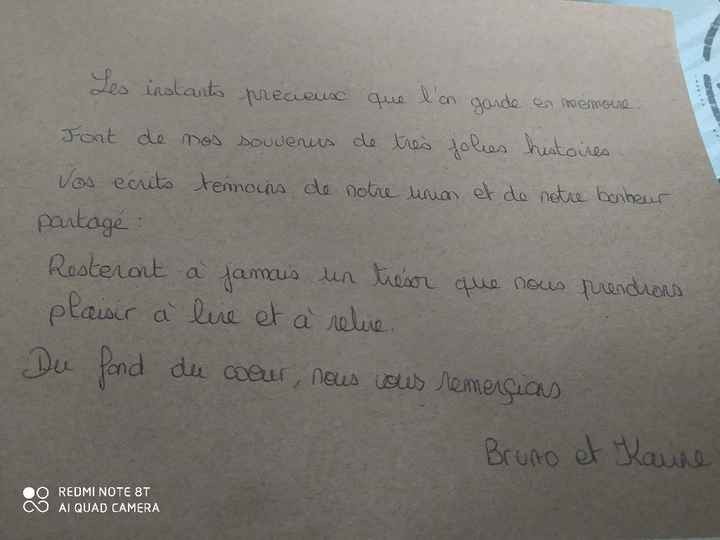 Les instants précieux que l'on garde en mémoire.
Font de nos souvenirs de très jolies histoires.
Vos écrits témoins de notre union et de notre bonheur
partagé :
Resteront à jamais un trésor que nous prendrons
plaisir à lire et à relire.
Du fond du coeur, nous vous remerçions
Bruno et Karine
REDMI NOTE 8T
AI QUAD CAMERA